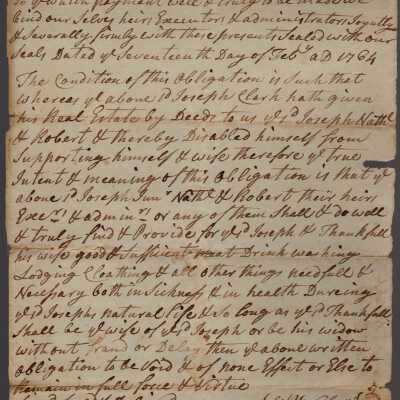 to ye which payment well & truly to be made we
bind our Selves heirs Executors & administrators Joyntly
& Severally firmly with these presents Sealed with our
Seals Dated ye Seventeenth Day of Feby AD 1764
The Condition of this Obligation is Such that
whereas ye above sd Joseph Clark hath given
his Real Estate by Deeds to us ye sd Joseph Nathl
& Robert & thereby Disabled himself from
Supporting himself & wife therefore ye true
Intent & meaning of this Obligation is that ye
above sd Joseph Junr Nathl & Robert their heirs
Execrs & adminrs or any of them Shall & do well
& truly find & Provide for ye sd Joseph & Thankfull
his wife good & Sufficient meat Drink washing
Lodging Cloathing & all other things needfull &
Necessary both in Sickness & in health Dureing
ye sd Josephs natural life & So long as ye sd Thankfull
Shall be ye wife of ye sd Joseph or be his widow
without fraud or Delay then ye above written
obligation to be Void & of none Effect or Else to
Remain in full force & Virtue